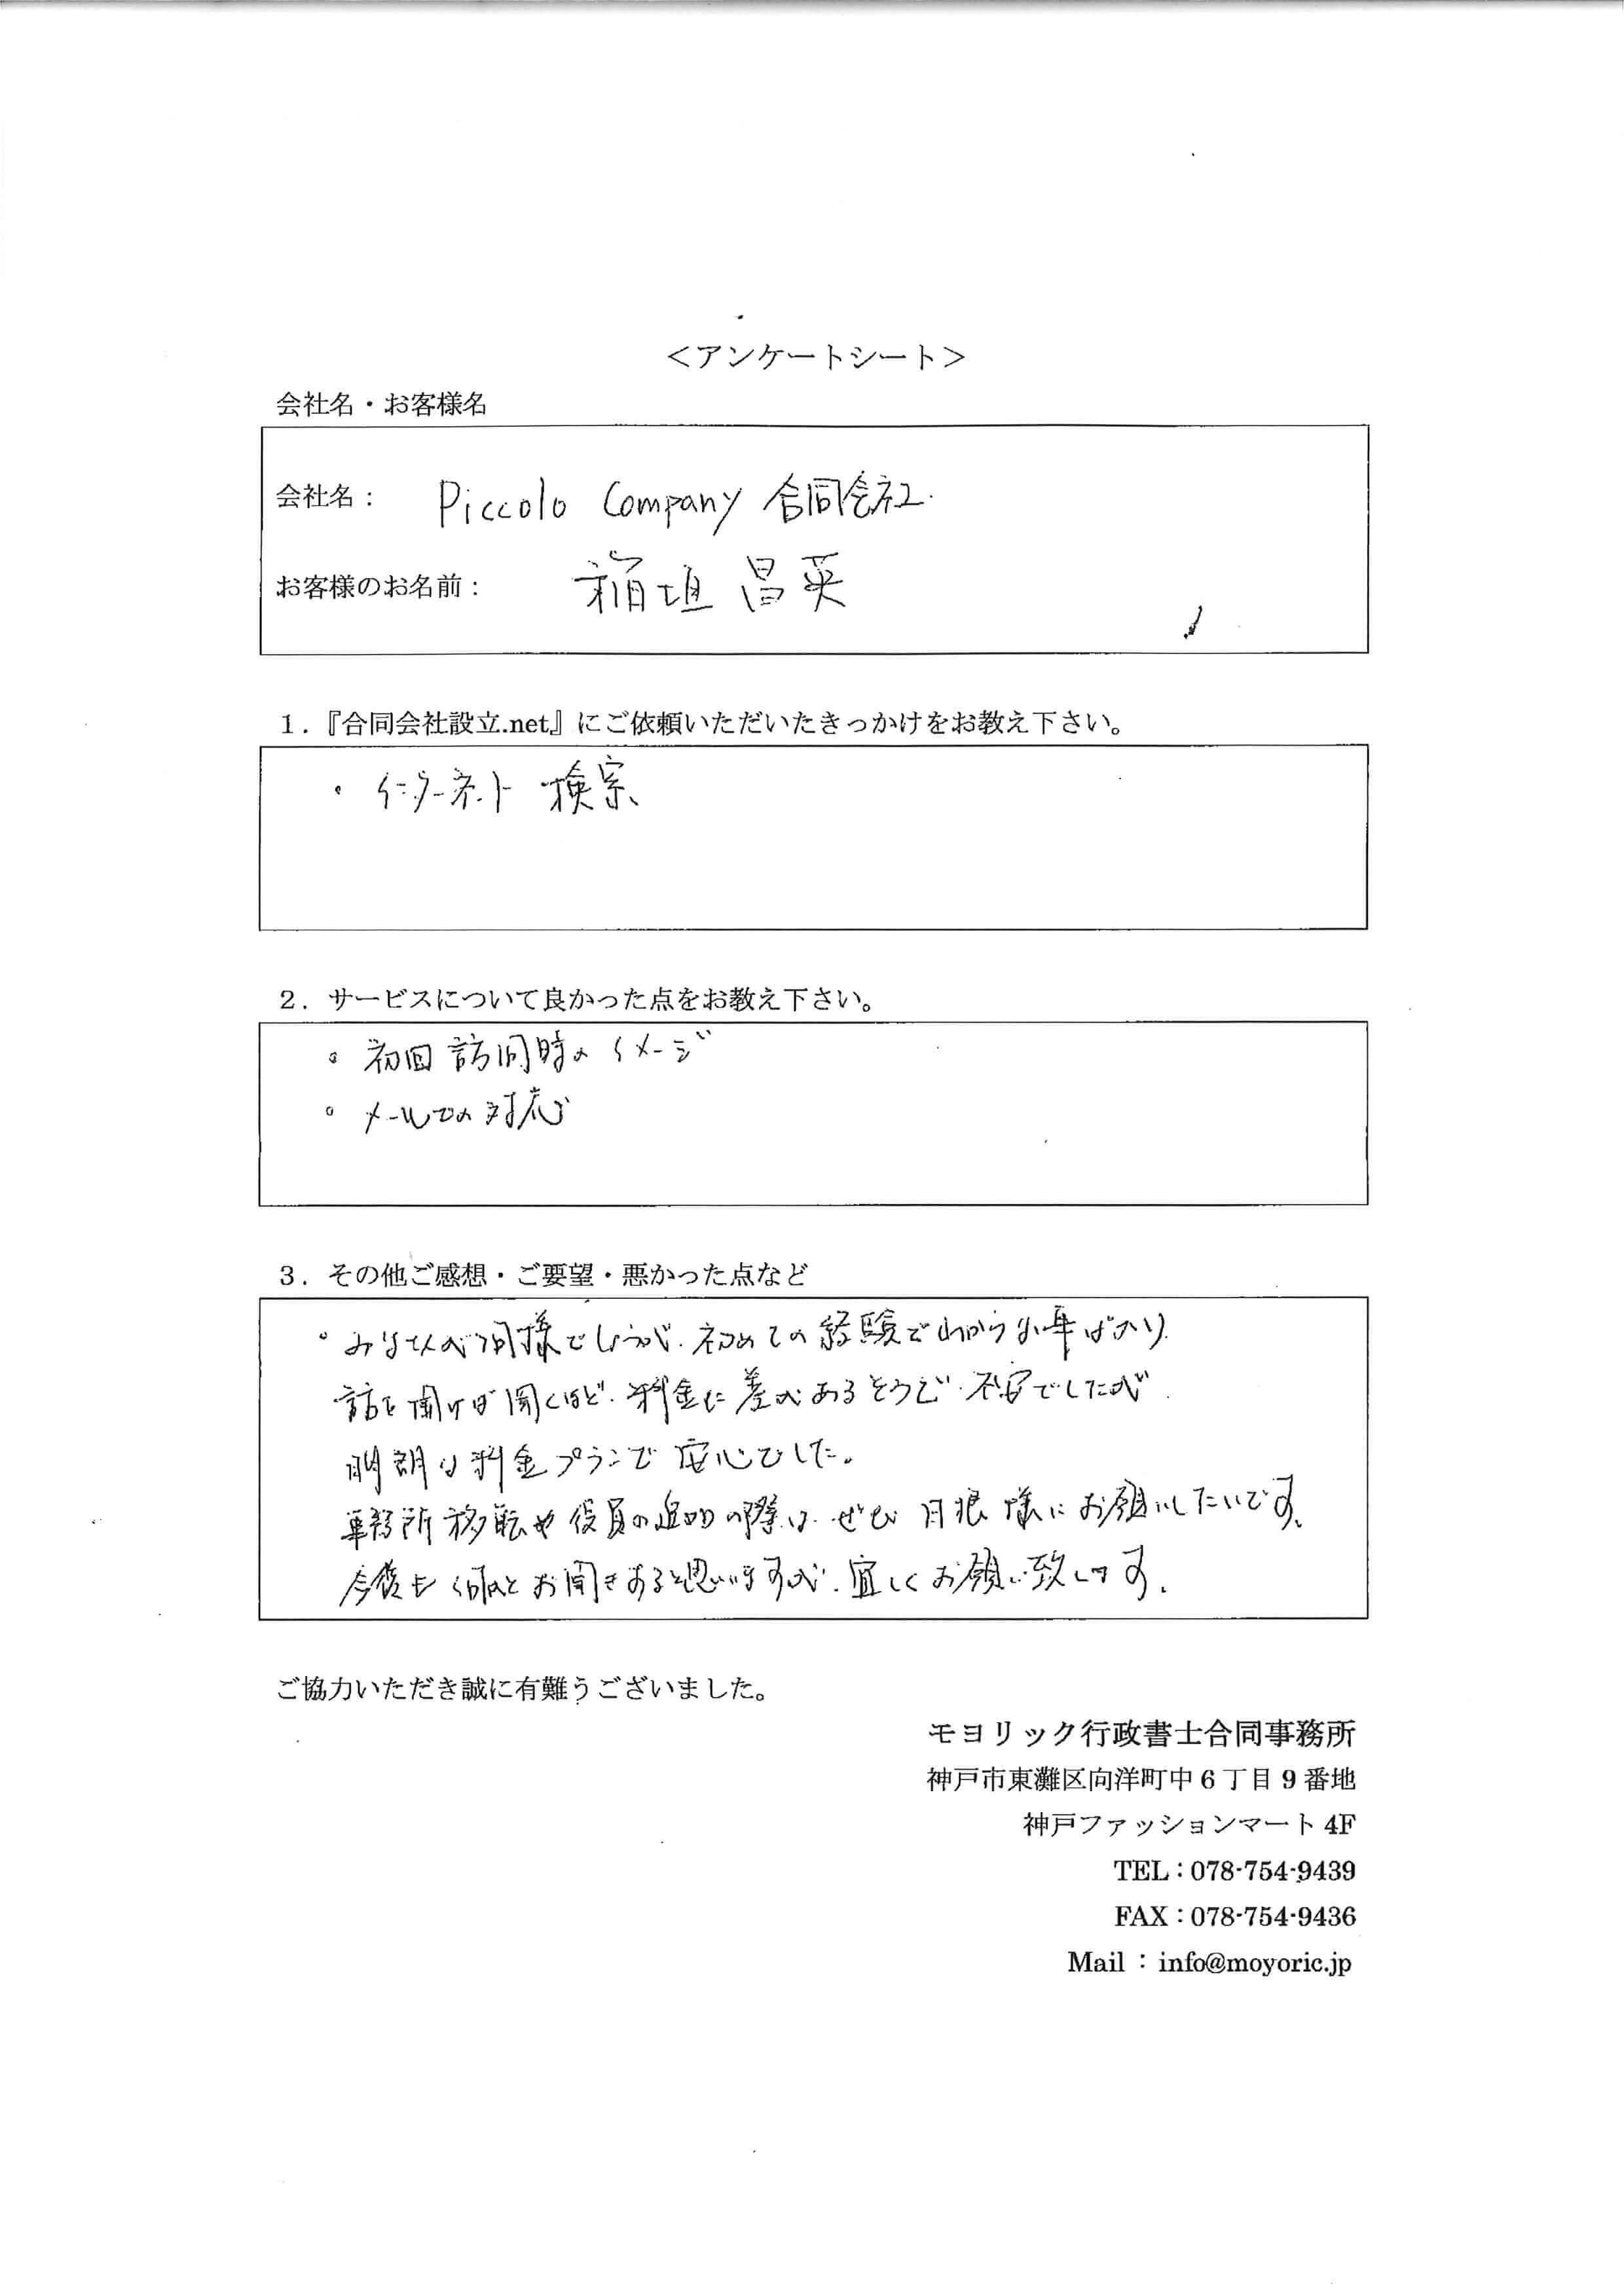 ＜アンケートシート＞
会社名・お客様名
会社名： Piccolo Company 合同会社.
お客様のお名前： 稲垣 昌英
１．『合同会社設立.net』にご依頼いただいたきっかけをお教え下さい。
・インターネット 検索
２．サービスについて良かった点をお教え下さい。
・初回訪問時のイメージ
・メールでの対応
３．その他ご感想・ご要望・悪かった点など
・みなさんが同様でしょうが、初めての経験でわからない事ばかり
話を聞けば聞くほど、料金に差があるそうで、不安でしたが、
明朗な料金プランで安心でした。
事務所移転や役員の追加の際は、ぜひ 様にお願いしたいです。
今後も何かとお聞きあると思いますが、宜しくお願い致します。
ご協力いただき誠に有難うございました。
モヨリック行政書士合同事務所
神戸市東灘区向洋町中６丁目 9 番地
神戸ファッションマート 4F
TEL：078-754-9439
FAX：078-754-9436
Mail：info@moyoric.jp